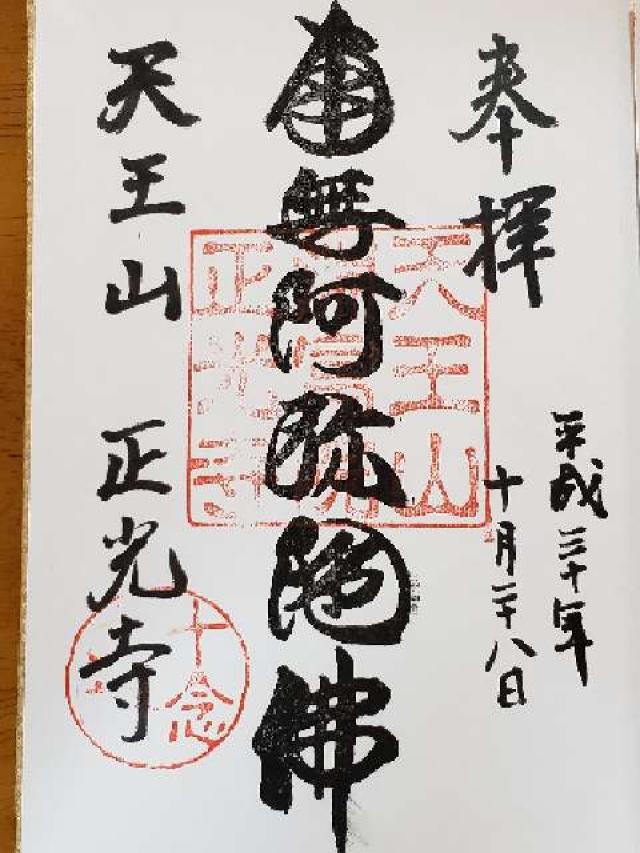 奉拝
平成三十年
十月二十八日
南無阿弥陀佛
天王山 正光寺
天王山
正光寺
十念